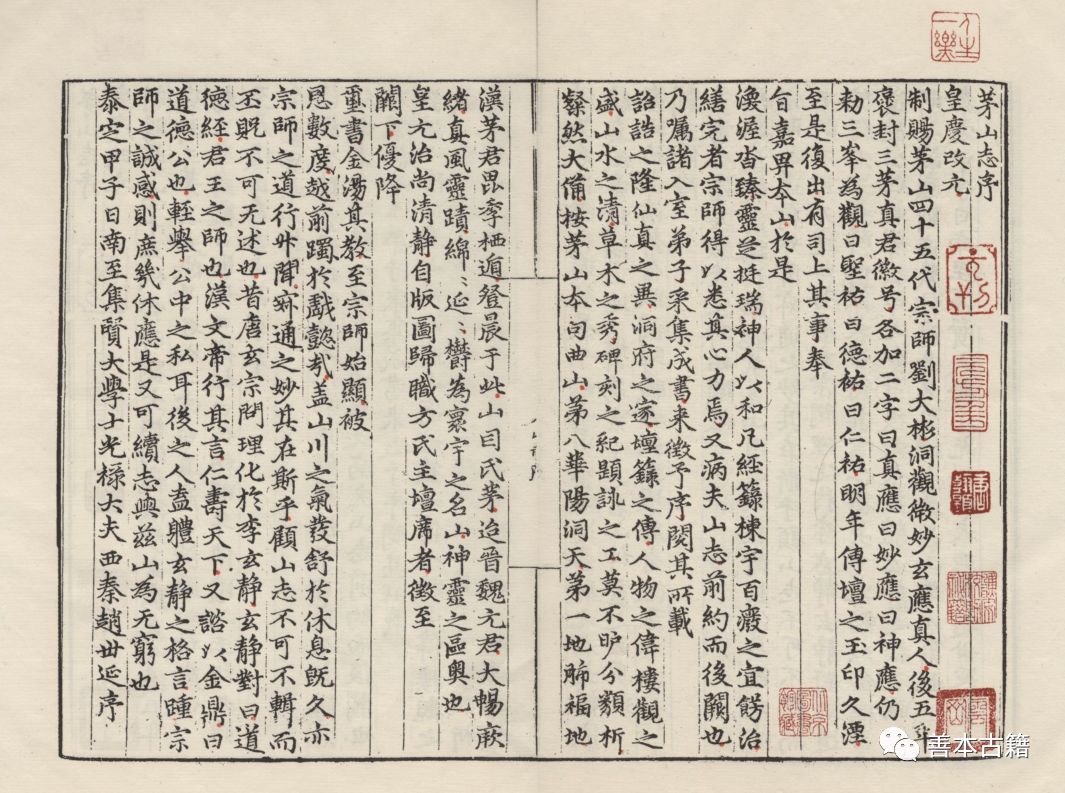 茅山志序
皇慶改元
制賜茅山四十五代宗師劉大彬洞觀微妙玄應真人後五年
襃封三茅真君徽号各加二字曰真應曰妙應曰神應仍
勑三峯為觀曰聖祐曰德祐曰仁祐明年傳壇之玉印久湮
至是復出有司上其事奉
旨嘉畀本山於是
渙渥沓臻靈芝挺瑞神人以和凡經籙棟宇百廢之宜餝治
繕完者宗師得以悉其心力焉又病夫山志前約而後闕也
乃嘱諸入室弟子采集成書来徵予序閱其所載
詔誥之隆仙真之異洞府之邃壇籙之傳人物之偉樓觀之
盛山水之清草木之秀碑刻之紀題詠之工莫不昈分類析
粲然大備按茅山本句曲山第八華陽洞天第一地肺福地
漢茅君毘季栖遁登晨于此山曰氏茅迨晉魏元君大暢厥
緒真風靈蹟綿〻延〻欝為寰宇之名山神靈之區奥也
皇元治尚清静自版圖歸職方氏主壇席者徵至
闕下優降
璽書金湯其教至宗師始顯被
恩數度越前躅於戲懿㦲盖山川之氣發舒於休息既久亦
宗師之道行升聞㝔通之妙其在斯乎顧山志不可不輯而
丕貺不可无述也昔唐玄宗問理化於李玄静玄静對曰道
德經君王之師也漢文帝行其言仁壽天下又諮以金鼎曰
道德公也輕舉公中之私耳後之人盍軆玄静之格言踵宗
師之誠感則庶㡬休應是又可續志與兹山為无窮也
泰定甲子日南至集賢大學士光禄大夫西秦趙世延序
元本
善本古籍